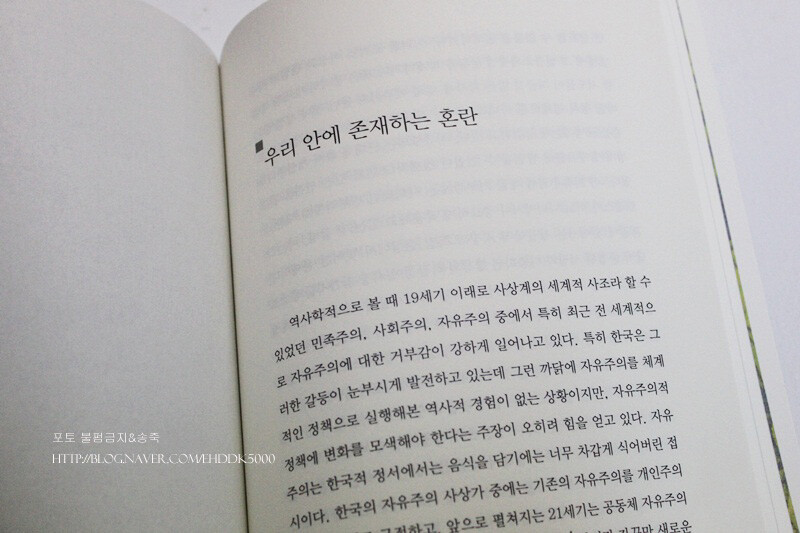 우리 안에 존재하는 혼란
역사학적으로 볼 때 19세기 이래로 사상계의 세계적 사조라 할 수
있었던 민족주의, 사회주의, 자유주의 중에서 특히 최근 전 세계적으
로 자유주의에 대한 거부감이 강하게 일어나고 있다. 특히 한국은 그
러한 갈등이 눈부시게 발전하고 있는데 그런 까닭에 자유주의를 체계
적인 정책으로 실행해본 역사적 경험이 없는 상황이지만, 자유주의적
정책에 변화를 모색해야 한다는 주장이 오히려 힘을 얻고 있다. 자유
주의는 한국적 정서에서는 음식을 담기에는 너무 차갑게 식어버린 접
시이다. 한국의 자유주의 사상가 중에는 기존의 자유주의를 개인주의
규정하고, 앞으로 펼쳐지는 21세기는 공동체 자유주의
새로운
포토 불펌금지&송죽
HTTP://BLOG.NAVER.COM/EHDDK5000